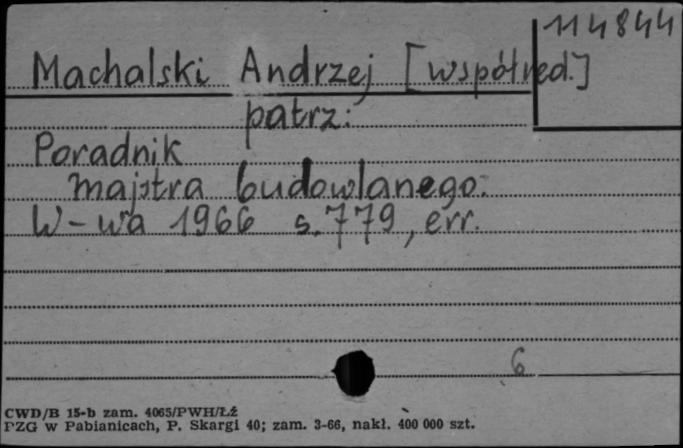 114844
Machalski Andrzej [współred.]
patrz:
Poradnik
majstra budowlanego.
W-wa 1966 s. 779, err.
6
CWD/B 15-b zam. 4065/PWH/Łź
PZG w Pabianicach, P. Skargi 40; zam. 3-66, nakł. 400 000 szt.